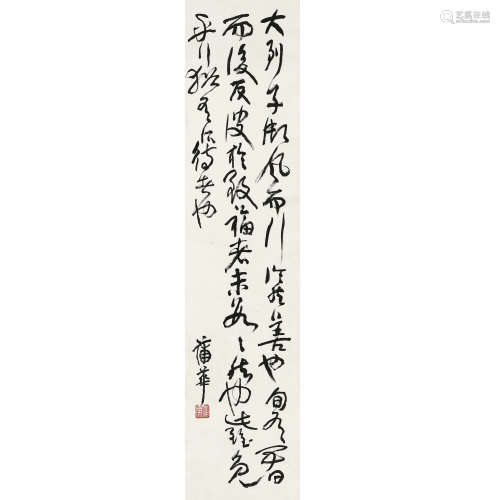 大列子御风而行泠然善也旬有五日
而後反彼於致福者未數々然也此雖免
乎行猶有所待者也
蒲華
艺狐在线